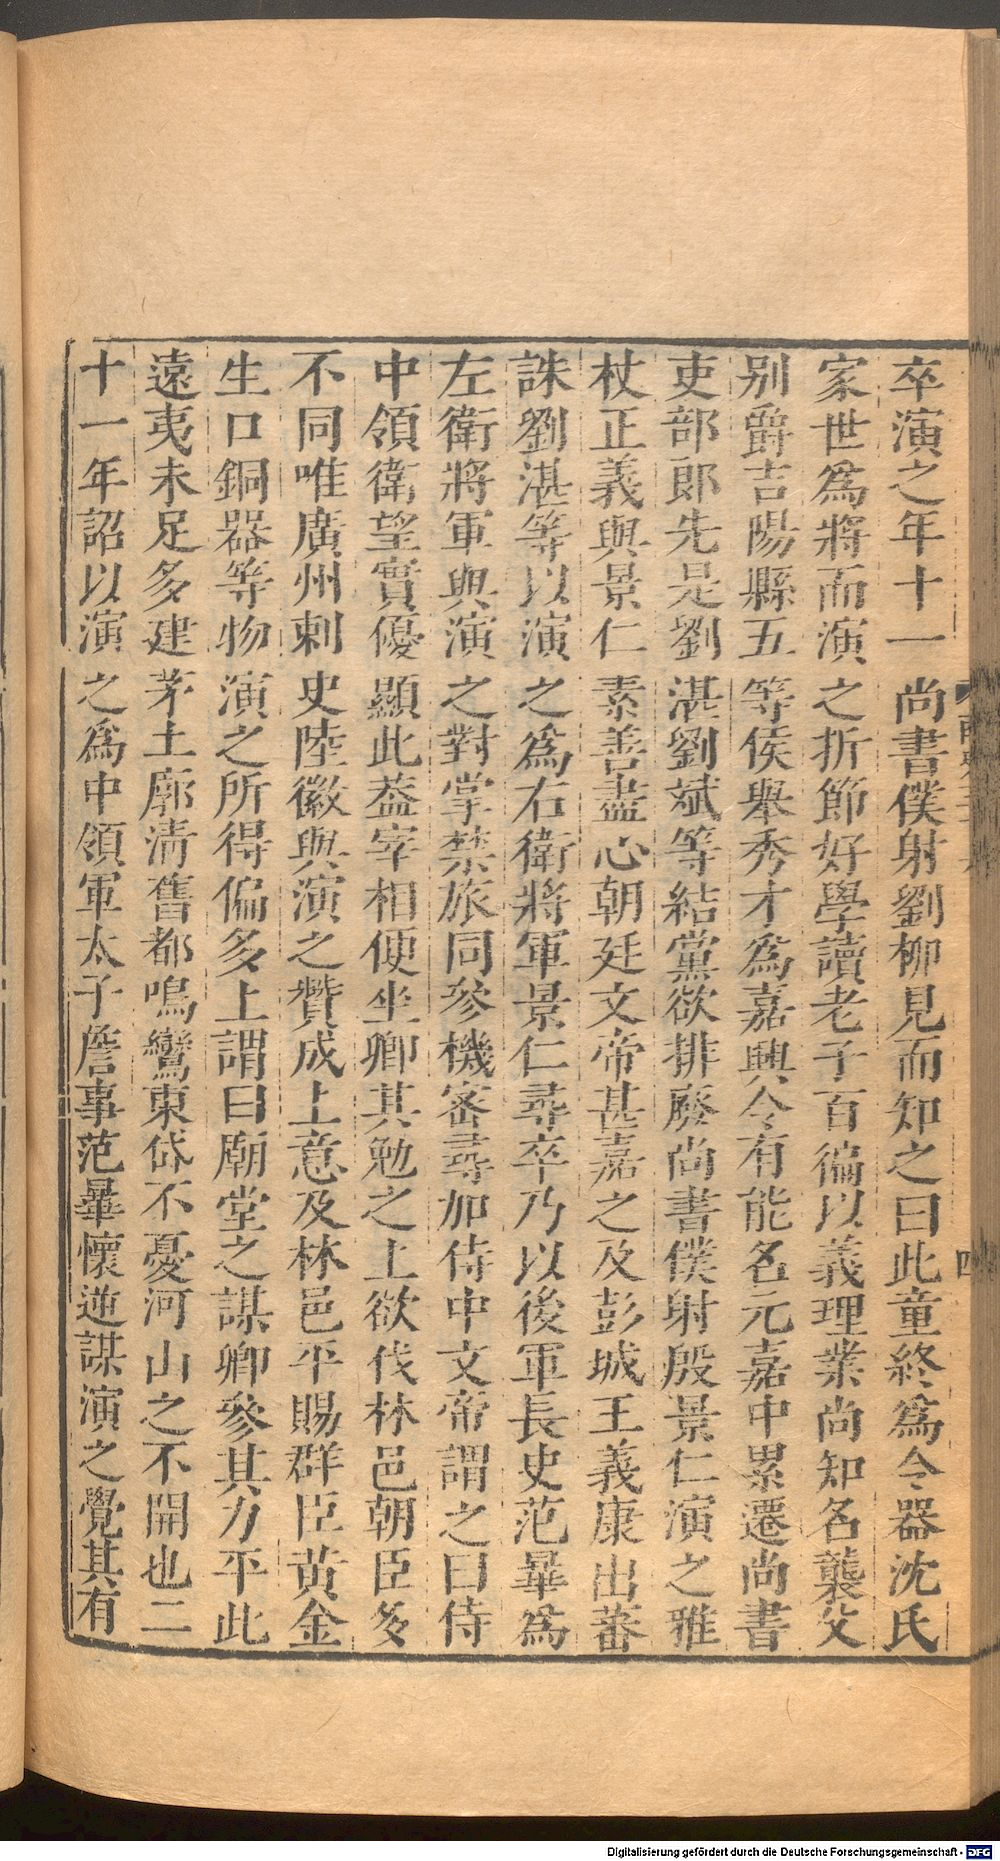 卒演之年十一尚書僕射劉柳見而知之曰此童終爲令器沈氏
家世爲將而演之折節好學讀老子百徧以義理業尚知名襲父
别爵吉陽縣五等侯舉秀才爲嘉興令有能名元嘉中累遷尚書
吏部郎先是劉湛劉斌等結黨欲排廢尚書僕射殷景仁演之雅
杖正義與景仁素善盡心朝廷文帝甚嘉之及彭城王義康出蕃
誅劉湛等以演之爲右衛將軍景仁尋卒乃以後軍長史范曅爲
左衛將軍與演之對掌禁旅同參機密尋加侍中文帝謂之曰侍
中領衛望實優顯此葢宰相便坐卿其勉之上欲伐林邑朝臣多
不同唯廣州刺史陸徽與演之贊成上意及林邑平賜群臣黄金
生口銅器等物演之所得偏多上謂曰廟堂之謀卿參其力平此
遠夷未足多建茅土廓清舊都鳴鸞東岱不憂河山之不開也二
十一年詔以演之爲中領軍太子詹事范曅懷逆謀演之覺其有
四
Digitalisierung gefördert durch die Deutsche Forschungsgemeinschaft - DFG